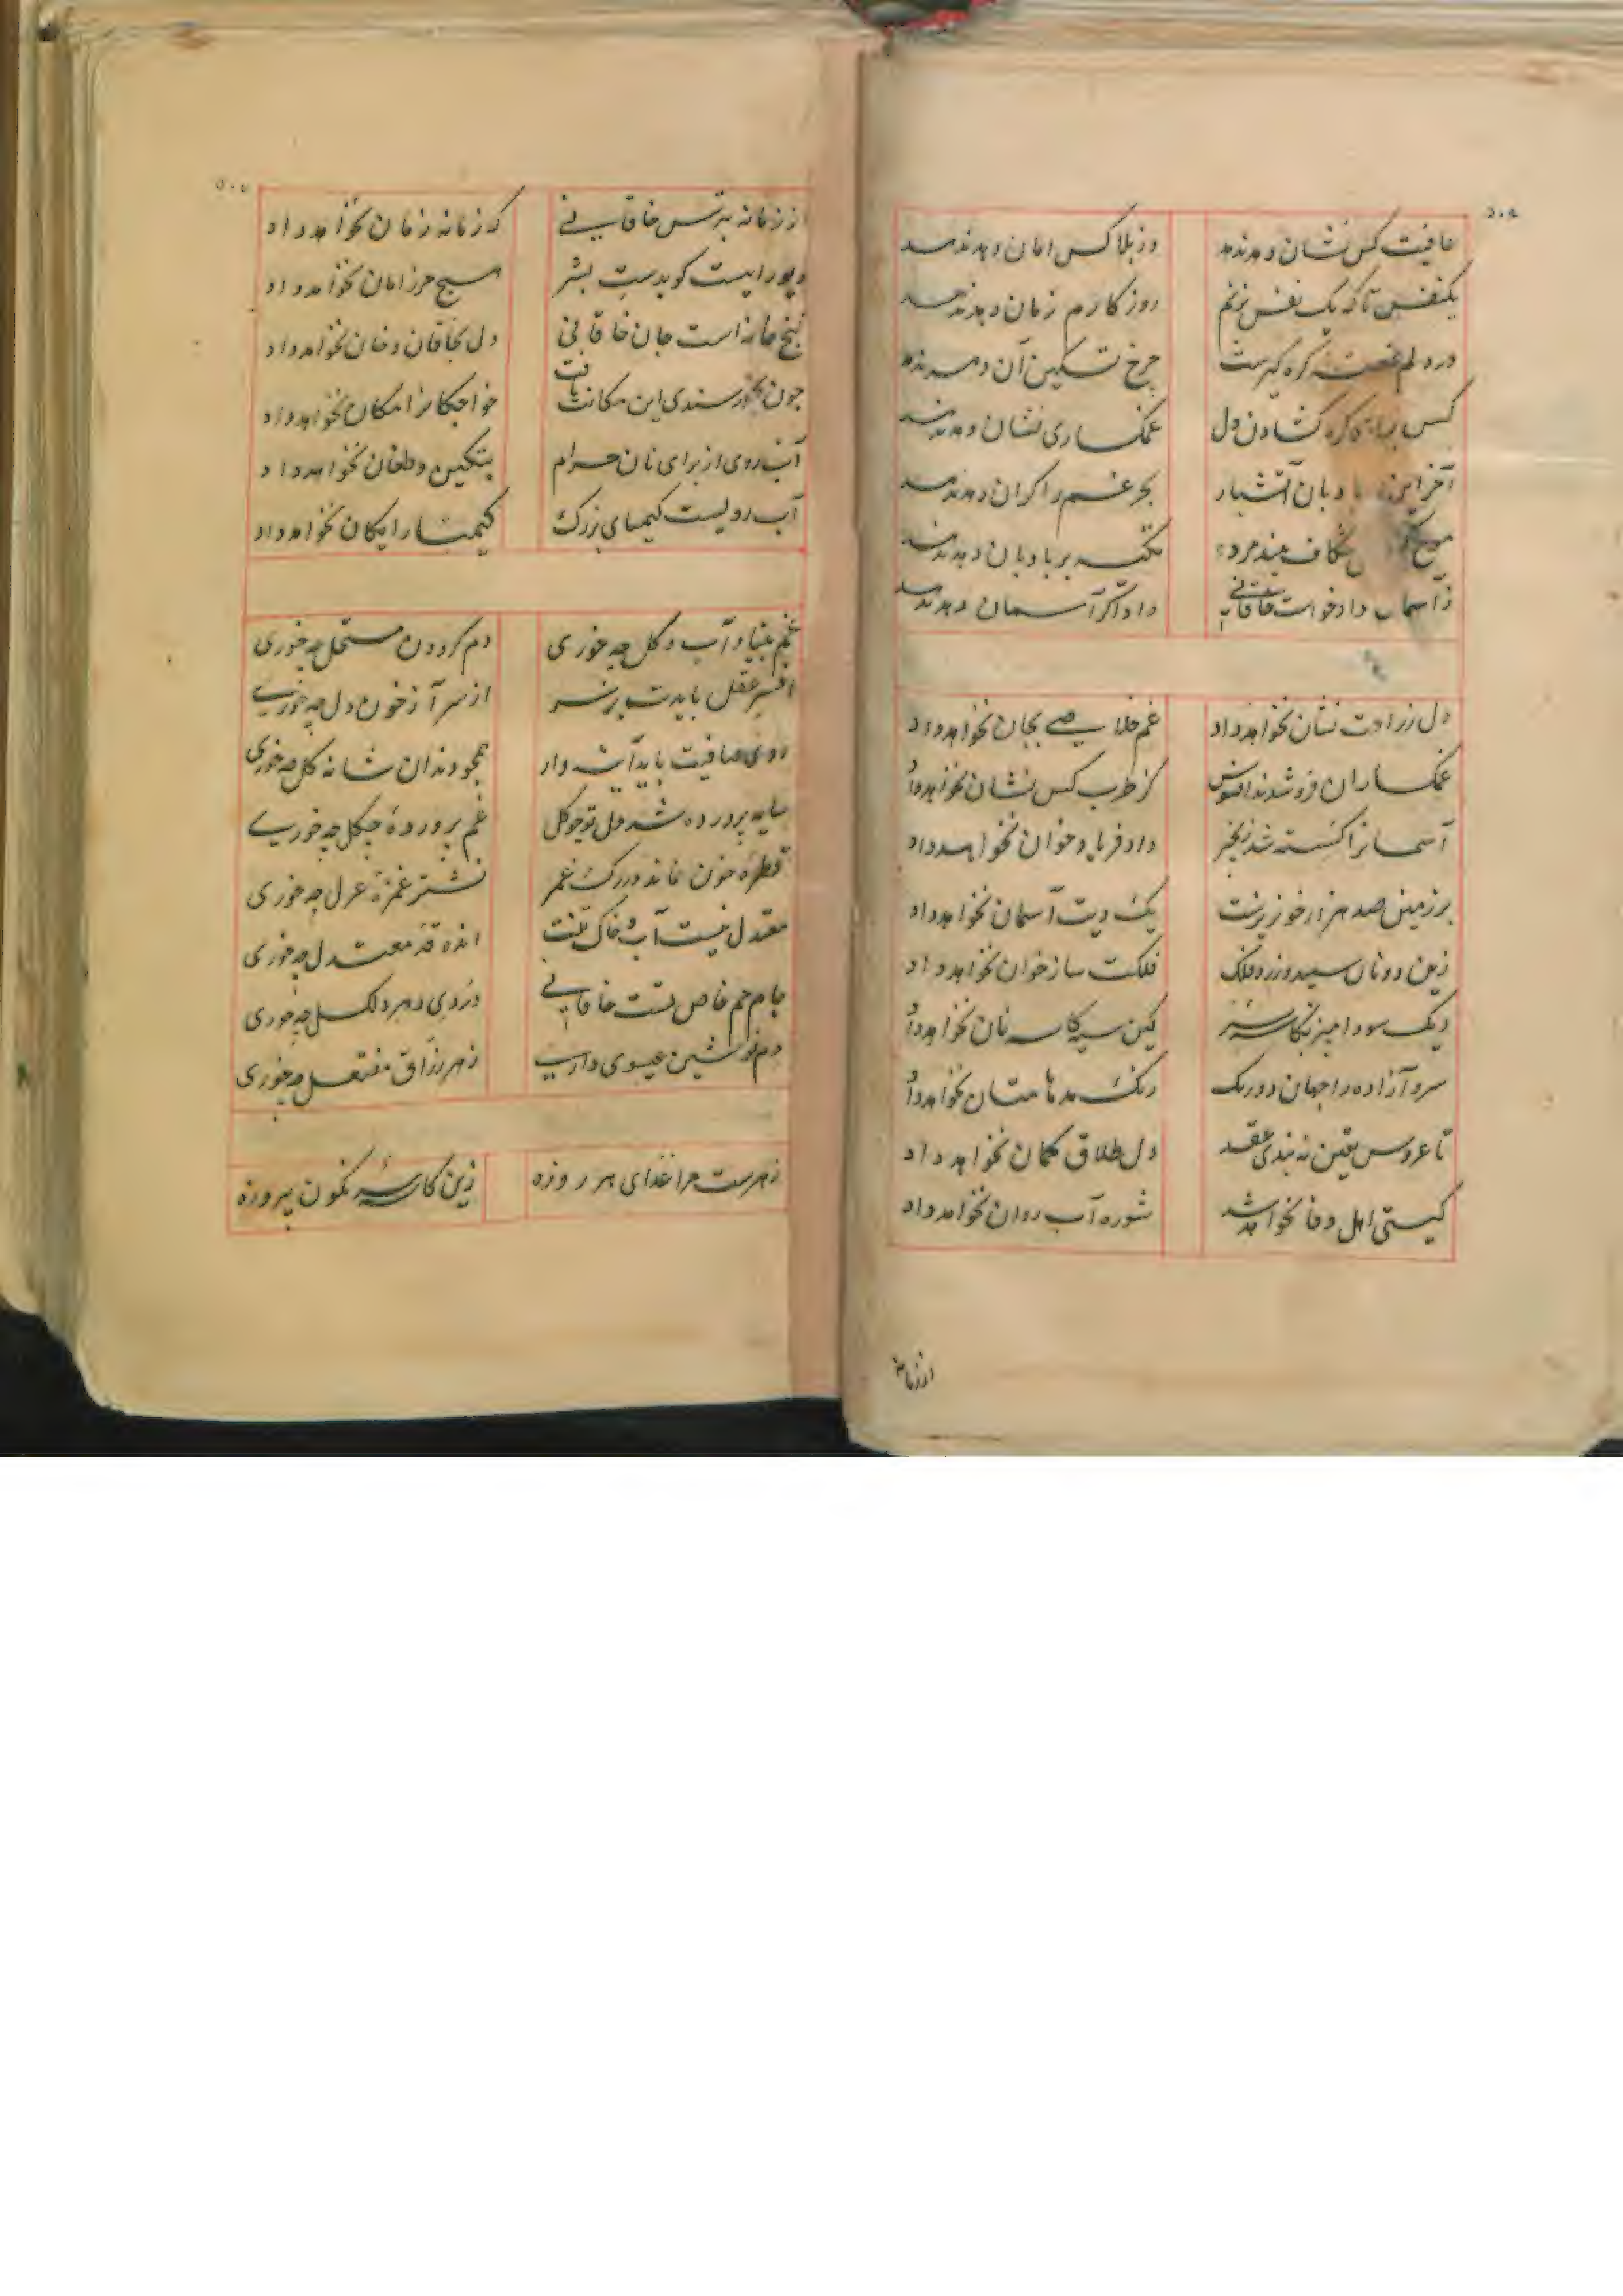 عافیت کس نشان دهد ندهد    وز بلا کس امان دهد ندهد
یکنفس تا که یک نفس بزنم    روزکارم زمان دهد ندهد
در دلم غصه کره کیرست    چرخ تسکین آن دهد ندهد
کس برای کره کشادن دل    غمکساری نشان دهد ندهد
آخر این بادبان آتشبار    بحر غم را کران دهد ندهد
شکاف    تکیه بر بادبان دهد ندهد
ز آسمان داد خواست خاقانی    داد اکر آسمان دهد ندهد
دل ز راحت نشان نخواهد داد    غم خلاصی بجان نخواهد داد
غمکساران فرو شدند افسوس    کز طرب کس نشان نخواهد داد
آسمانرا کسسته شد زنجیر    داد فریاد خوان نخواهد داد
بر زمین صد هزار خون ریزست    یک دیت آسمان نخواهد داد
زین دو نان سپید و زرد فلک    فلکت ساز خوان نخواهد داد
دیک سودا مپز بکاسه سر    کین سیه کاسه نان نخواهد داد
سرو آزاده را جهان دورنک    رنک مدهامتان نخواهد داد
تا عروس یقین نه بندی عقد    دل طلاق کمان نخواهد داد
کیتی اهل وفا نخواهد شد    شوره آب روان نخواهد داد
از زمانه
۵۰۵
از زمانه بترس خاقانی    که زمانه زمان نخواهد داد
دیو رایست کو بدست بشر    هیچ حرز امان نخواهد داد
نیم جانه است جان خاقانی    دل بخاقان و خان نخواهد داد
چون بخورسندی این مکانت یافت    خواجکانرا مکان نخواهد داد
آب روی از برای نان حرام    بتکین و طغان نخواهد داد
آب رویست کیمیای بزرک    کیمیا رایکان نخواهد داد
غم بنیاد آب و کل چه خوری    دم کردون مستحل چه خوری
افسر عقل بایدت بر سر    از سر آز خون دل چه خوری
روی صافیت باید آینه وار    همچو دندان شانه کل چه خوری
سایه پرورده شد دل تو چو کل    غم پرورده چکل چه خوری
قطره خون نماند در رک عمر    نشتر غمزه عزل چه خوری
معتدل نیست آب و خاک تنت    انده قد معتدل چه خوری
جام جم خاص تست خاقانی    دردی دهر دلکسل چه خوری
دم نوشین عیسوی داری    زهر زراق مفتعل چه خوری
زهرست مرا غذای هر روزه    زین کاسه سرنکون پیروزه